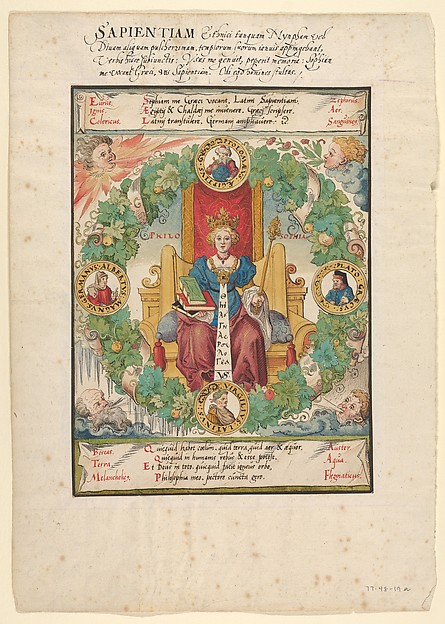 SAPIENTIAM Ethnici tanquam Nympham vel
Divam aliquam pulcherrimam, templorum suorum ianuis appingebant,
Verbis hisce subiunctis: Usus me genuit, peperit memoria: Sophiam
me vocant Graeci, vos Sapientiam. Odi ego homines stultos
Eurus,
Ignis,
Colericus.
Sophiam me Graeci vocant, Latini Sapientiam,
Aegiptij & Chaldaei me invenere, Graeci scripsere
Latini transtulere, Germani ampliavere
Zephirus,
Aer,
Sanguineus
PTOLOMAEUS AEGIPTIUS
PHILO
SOPHIA
ALBERTUS MAGNUS GERMANUS
PLATO GRAECUS
VIRGILIUS LATINUS
Boreas,
Terra,
Melancholicus
Quicquid habet coelum, quid terra, quid aer & aequor,
Quicquid in humanis rebus & esse potest,
Et Deus in toto quicquid facit igneus orbe,
Philosophia meo pectore cuncta gero.
Auster,
Aqua,
Flegmaticus.